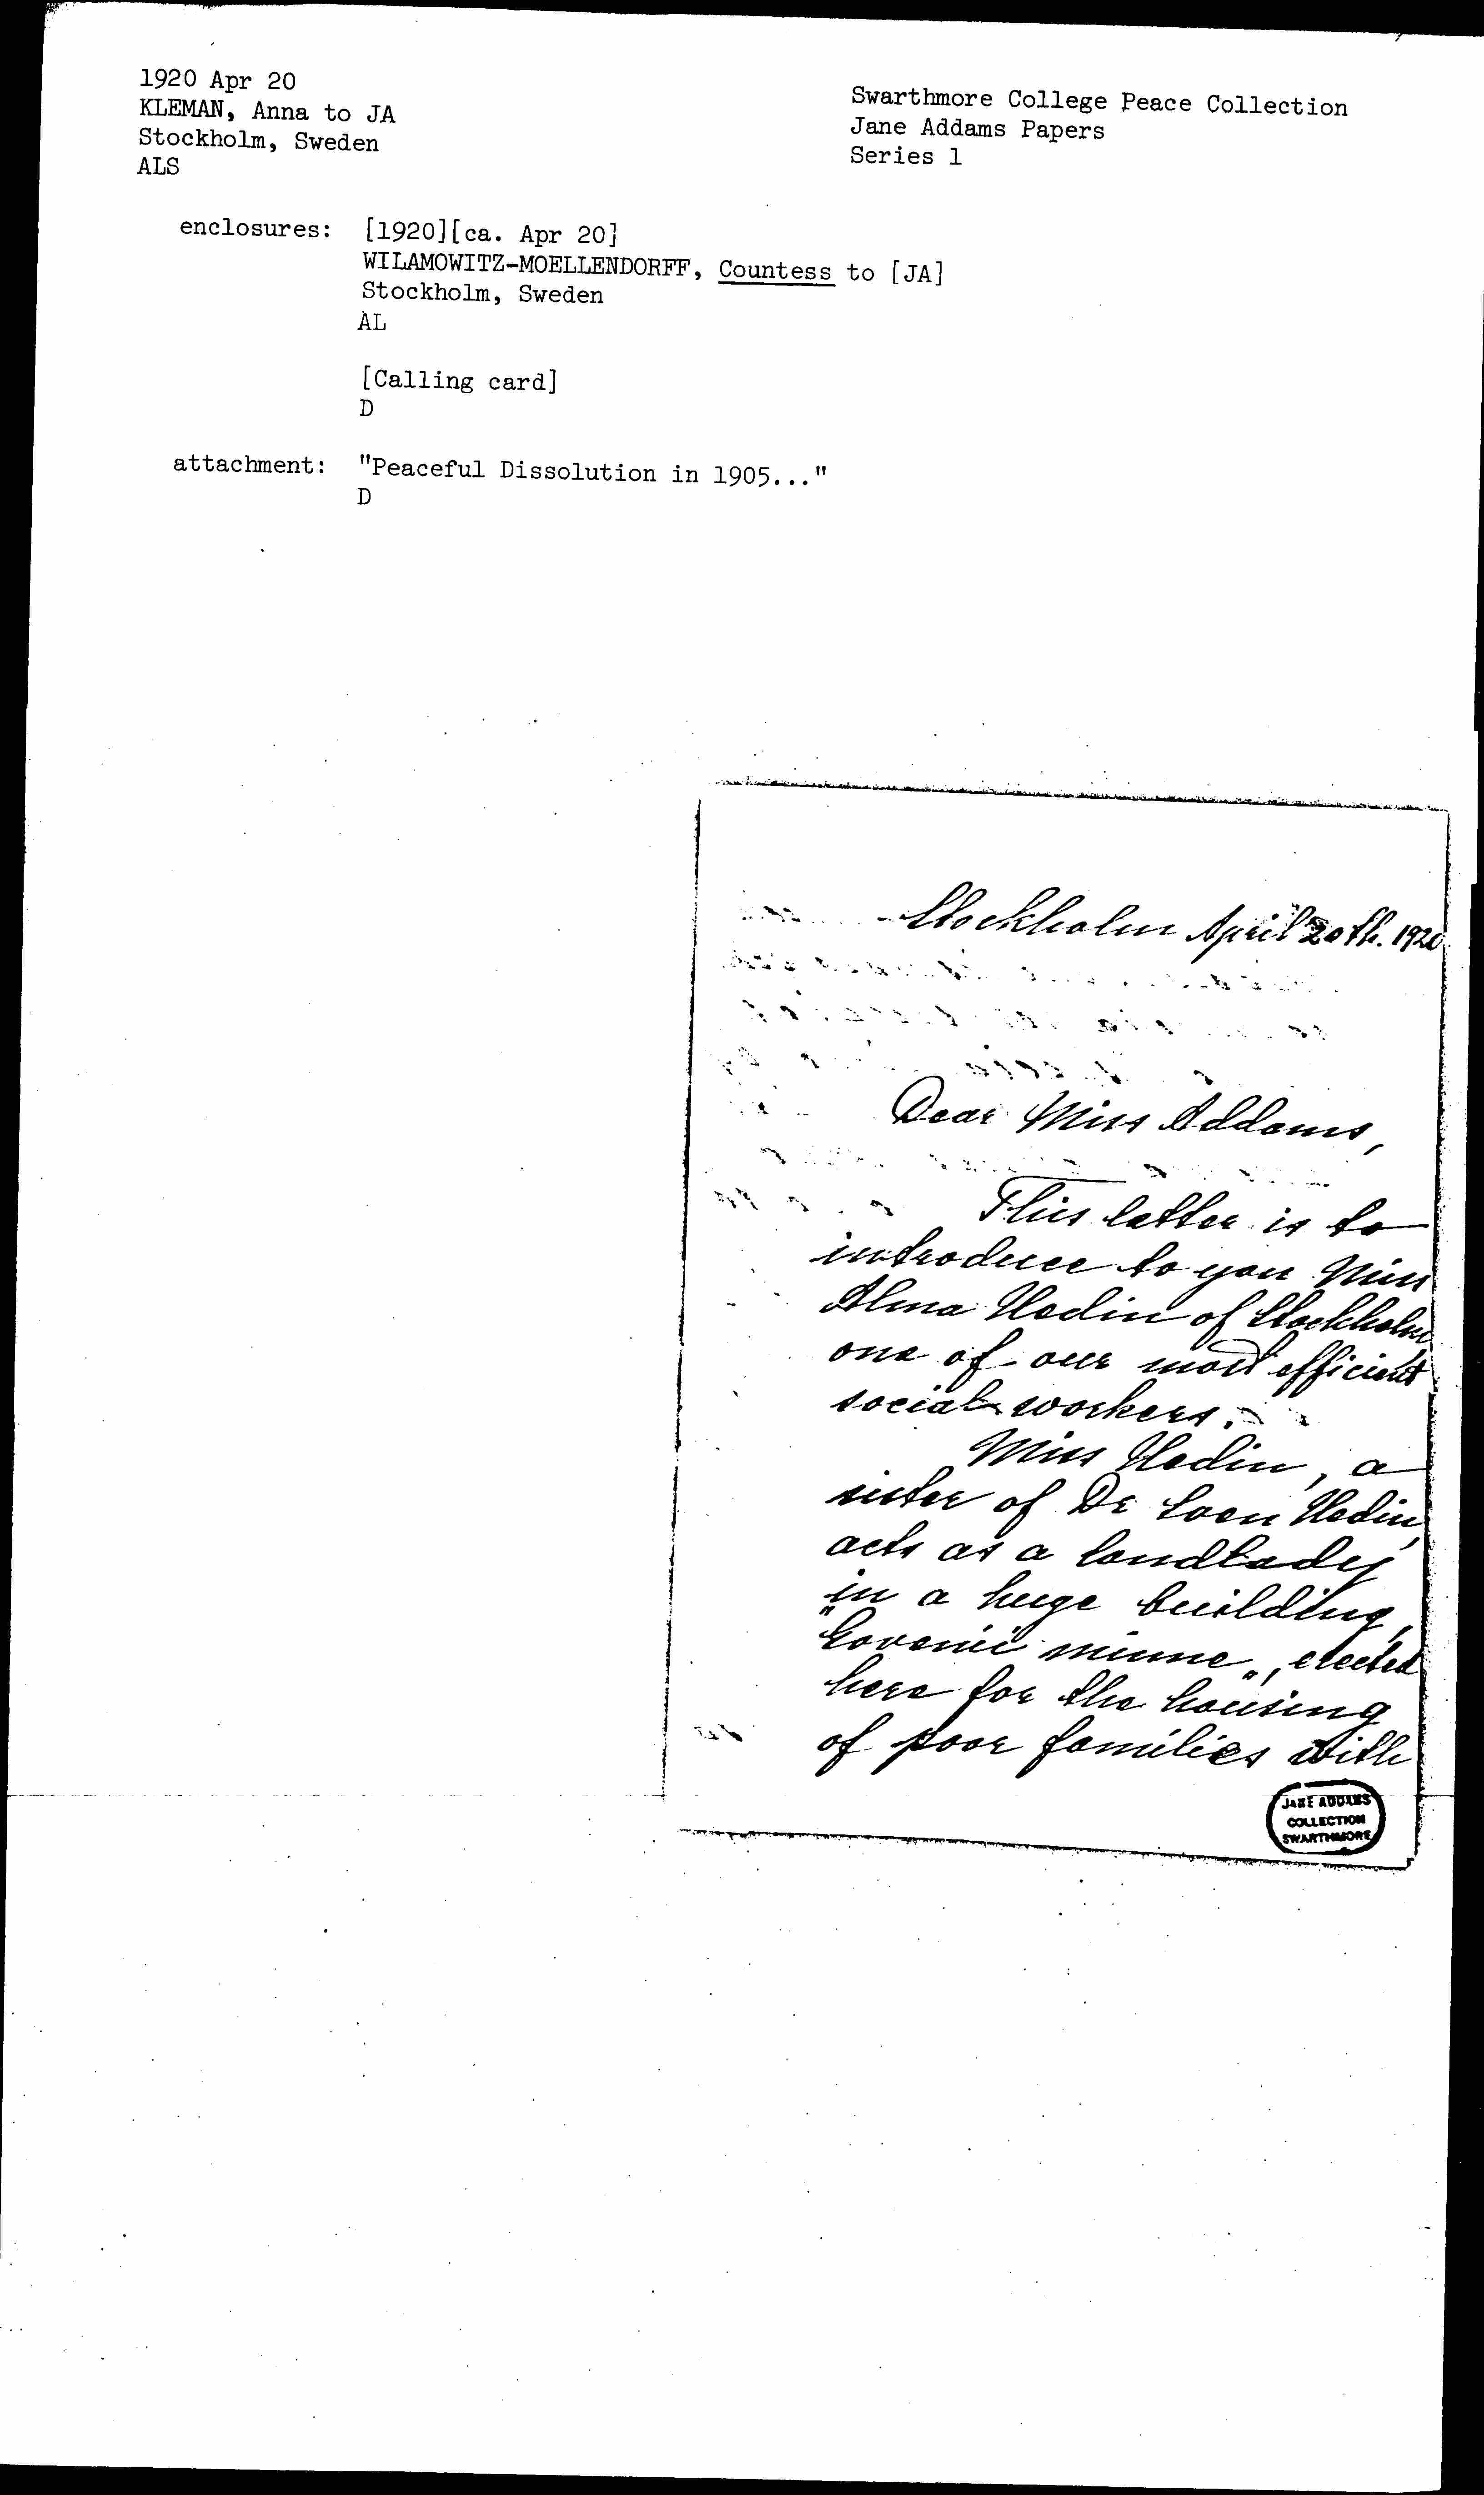 1920 Apr 20
KLEMAN, Anna to JA
Stockholm, Sweden
ALS
Swarthmore College Peace Collection
Jane Addams Papers
Series 1
enclosures: [1920][ca. Apr 20]
WILAMOWITZ-MOELLENDORFF, Countess to [JA]
Stockholm, Sweden
AL
[Calling card]
D
attachment: "Peaceful Dissolution in 1905..."
D
Stockholm April 20th. 1920
Dear Miss Addams,
This letter is to
introduce to you Miss
Alma Hedin of Stockholm,
one of our most efficient
social workers.
Miss Hedin, a
sister of Dr Sven Hedin,
acts as a landlady
in a huge building,
minne", erected
here for the housing
of poor families with
JANE ADDAMS
COLLECTION
SWARTHMORE